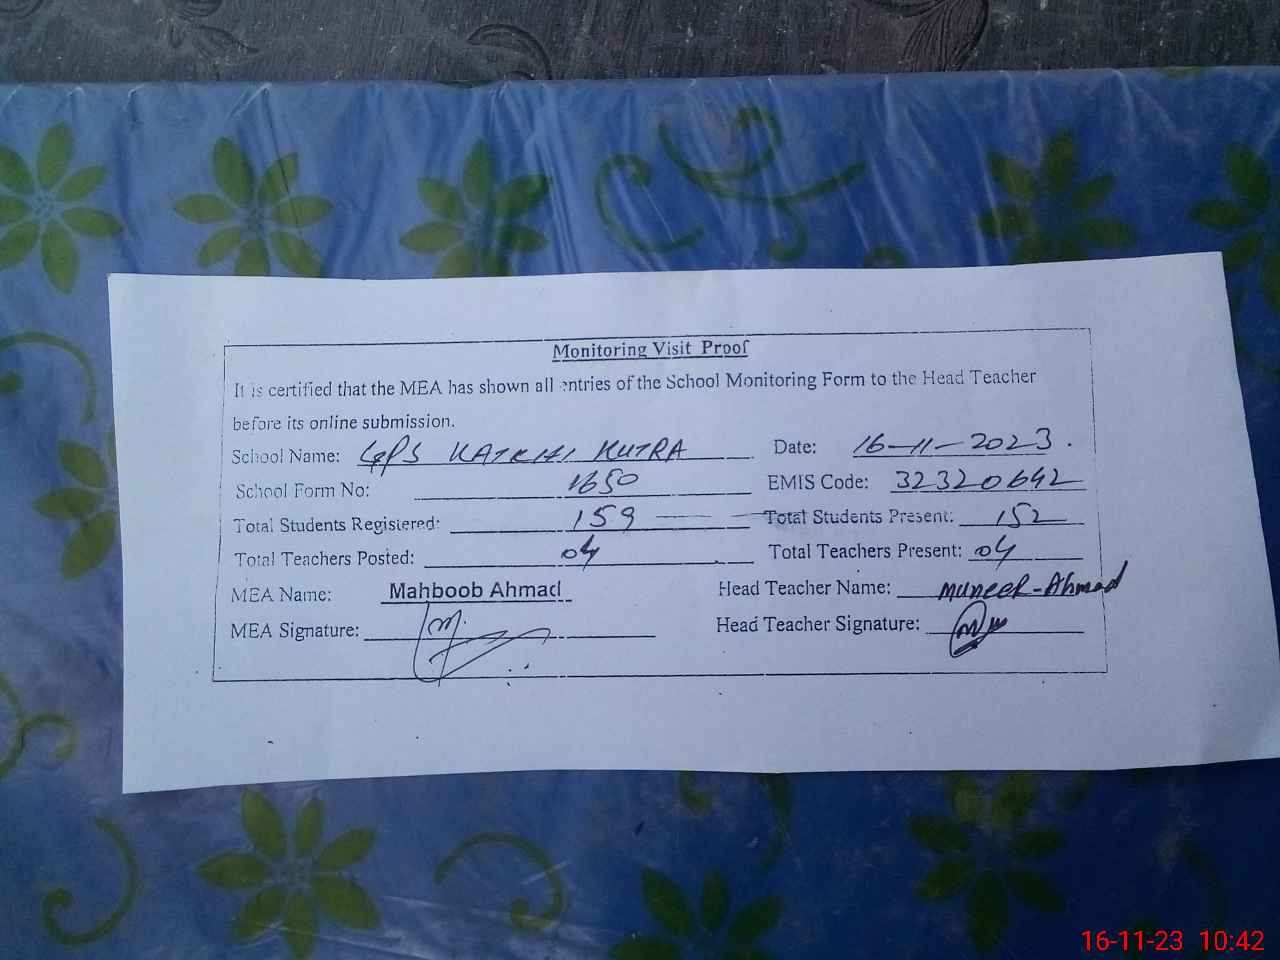 Monitoring Visit Proof
It is certified that the MEA has shown all entries of the School Monitoring Form to the Head Teacher
before its online submission.
School Name: GPS KATCHI KUTRA Date: 16-11-2023.
School Form No: 1650 EMIS Code: 32320642
Total Students Registered: 159 Total Students Present: 152
Total Teachers Posted: 04 Total Teachers Present: 04
MEA Name: Mahboob Ahmad Head Teacher Name: Muneer-Ahmad
MEA Signature: Head Teacher Signature:
16-11-23 10:42